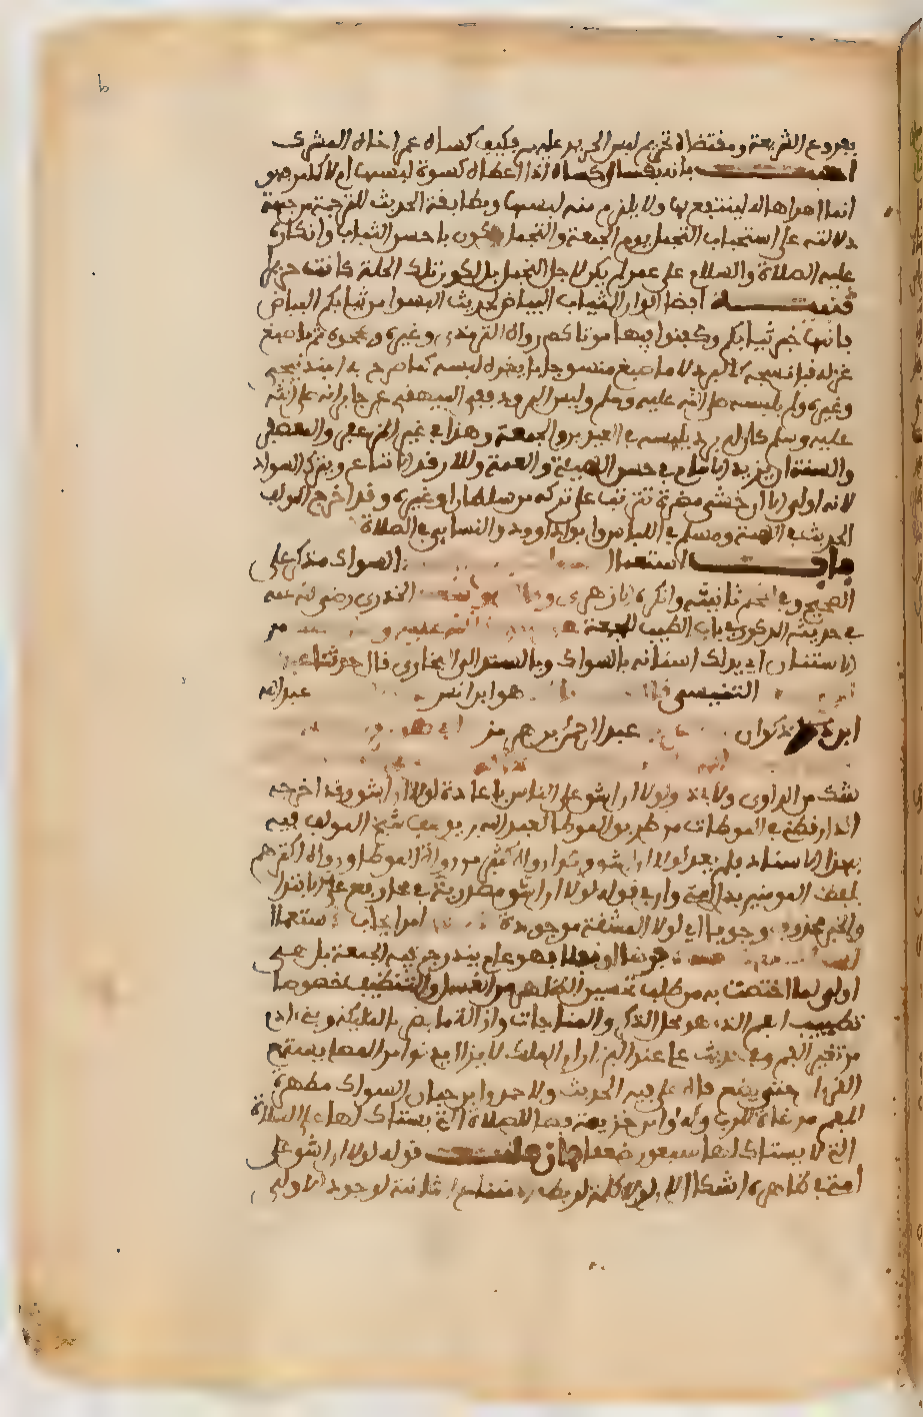 بفروع الشريعة ومقتضاه تحريم لبس الحرير عليه فكيف كساه عمر اخاه المشرك
اجيب بانه يقال كساه اذا اعطاه كسوة لبسها ام لا كما مر فهو
انما اهداها له لينتفع بها ولا يلزم منه لبسها ومطابقة الحديث للترجمة من جهة
دلالته على استحباب التجمل يوم الجمعة والتجمل يكون باحسن الثياب وانكاره
عليه الصلاة والسلام على عمر لم يكن لاجل التجمل بل لكون تلك الحلة كانت حريرا
تنبيه افضل الوان الثياب البياض لحديث البسوا من ثيابكم البياض
فانها خير ثيابكم وكفنوا فيها موتاكم رواه الترمذي وغيره وصححوه ثم ما صبغ
غزله قبل نسجه كالبرد لا ما صبغ منسوجا بل يكره لبسه كما صرح به البندنيجي
وغيره ولم يلبسه صلى الله عليه وسلم ولبس البرود ففي البيهقي عن جابر انه صلى الله
عليه وسلم كان له برد يلبسه في العيدين والجمعة وهذا في غير المزعفر والمعصفر
والسنة ان يزيد الامام في حسن الهيئة والعمة والارتداء للاتباع ويترك السواد
لانه اولى الا ان خشي مفسدة تترتب على تركه من سلطان او غيره وقد اخرج المؤلف
الحديث في الهبة ومسلم في اللباس وابو داوود والنسائي في الصلاة
باب استعمال السواك مذكر على
الصحيح وفي المحكم تانيثه وانكره الازهري وقال ابو سعيد الخدري رضي الله عنه
في حديثه المذكور في باب الطيب للجمعة عن النبي صلى الله عليه وسلم من
الاستنان اي يدلك اسنانه بالسواك وبالسند الى البخاري قال حدثنا عبد
الله التنيسي قال مالك هو ابن انس عبد الله
ابن ذكوان عن عبد الرحمن بن هرمز ابي هريرة
شك من الراوي ولابي ذر ولولا ان اشق على الناس باعادة لولا ان اشق وقد اخرجه
الدارقطني في الموطات من طريق الموطا لعبد الله بن يوسف شيخ المؤلف فيه
بهذا الاسناد فلم يعد لولا ان اشق وكذا رواه كثير من رواة الموطا ورواه اكثرهم
بلفظ المومنين بدل امتي وان في قوله لولا ان اشق مصدرية في محل رفع على الابتدا
والخبر محذوف وجوبا اي لولا المشقة موجودة امر ايجاب استعمال
فرضا او نفلا فهو عام يندرج فيه الجمعة بل هي
اولى لما اختصت به من طلب تحسين الظاهر من الغسل والتنظيف خصوصا
تطييب الفم الذي هو محل الذكر والمناجات وازالة ما يضر بالملائكة وبني ادم
من تغير الفم وفي حديث علي عند البزار ان الملك لا يزال يدنو من المصلي يستمع
القران حتى يضع فاه على فيه الحديث ولاحمد وابن حبان السواك مطهرة
للفم مرضاة للرب وله وابن خزيمة فضل الصلاة التي يستاك لها على الصلاة
التي لا يستاك لها سبعون ضعفا فان قلت قوله لولا ان اشق على
امتي في ظاهره اشكال لان لولا كلمة لربط امتناع الثانية لوجود الاولى